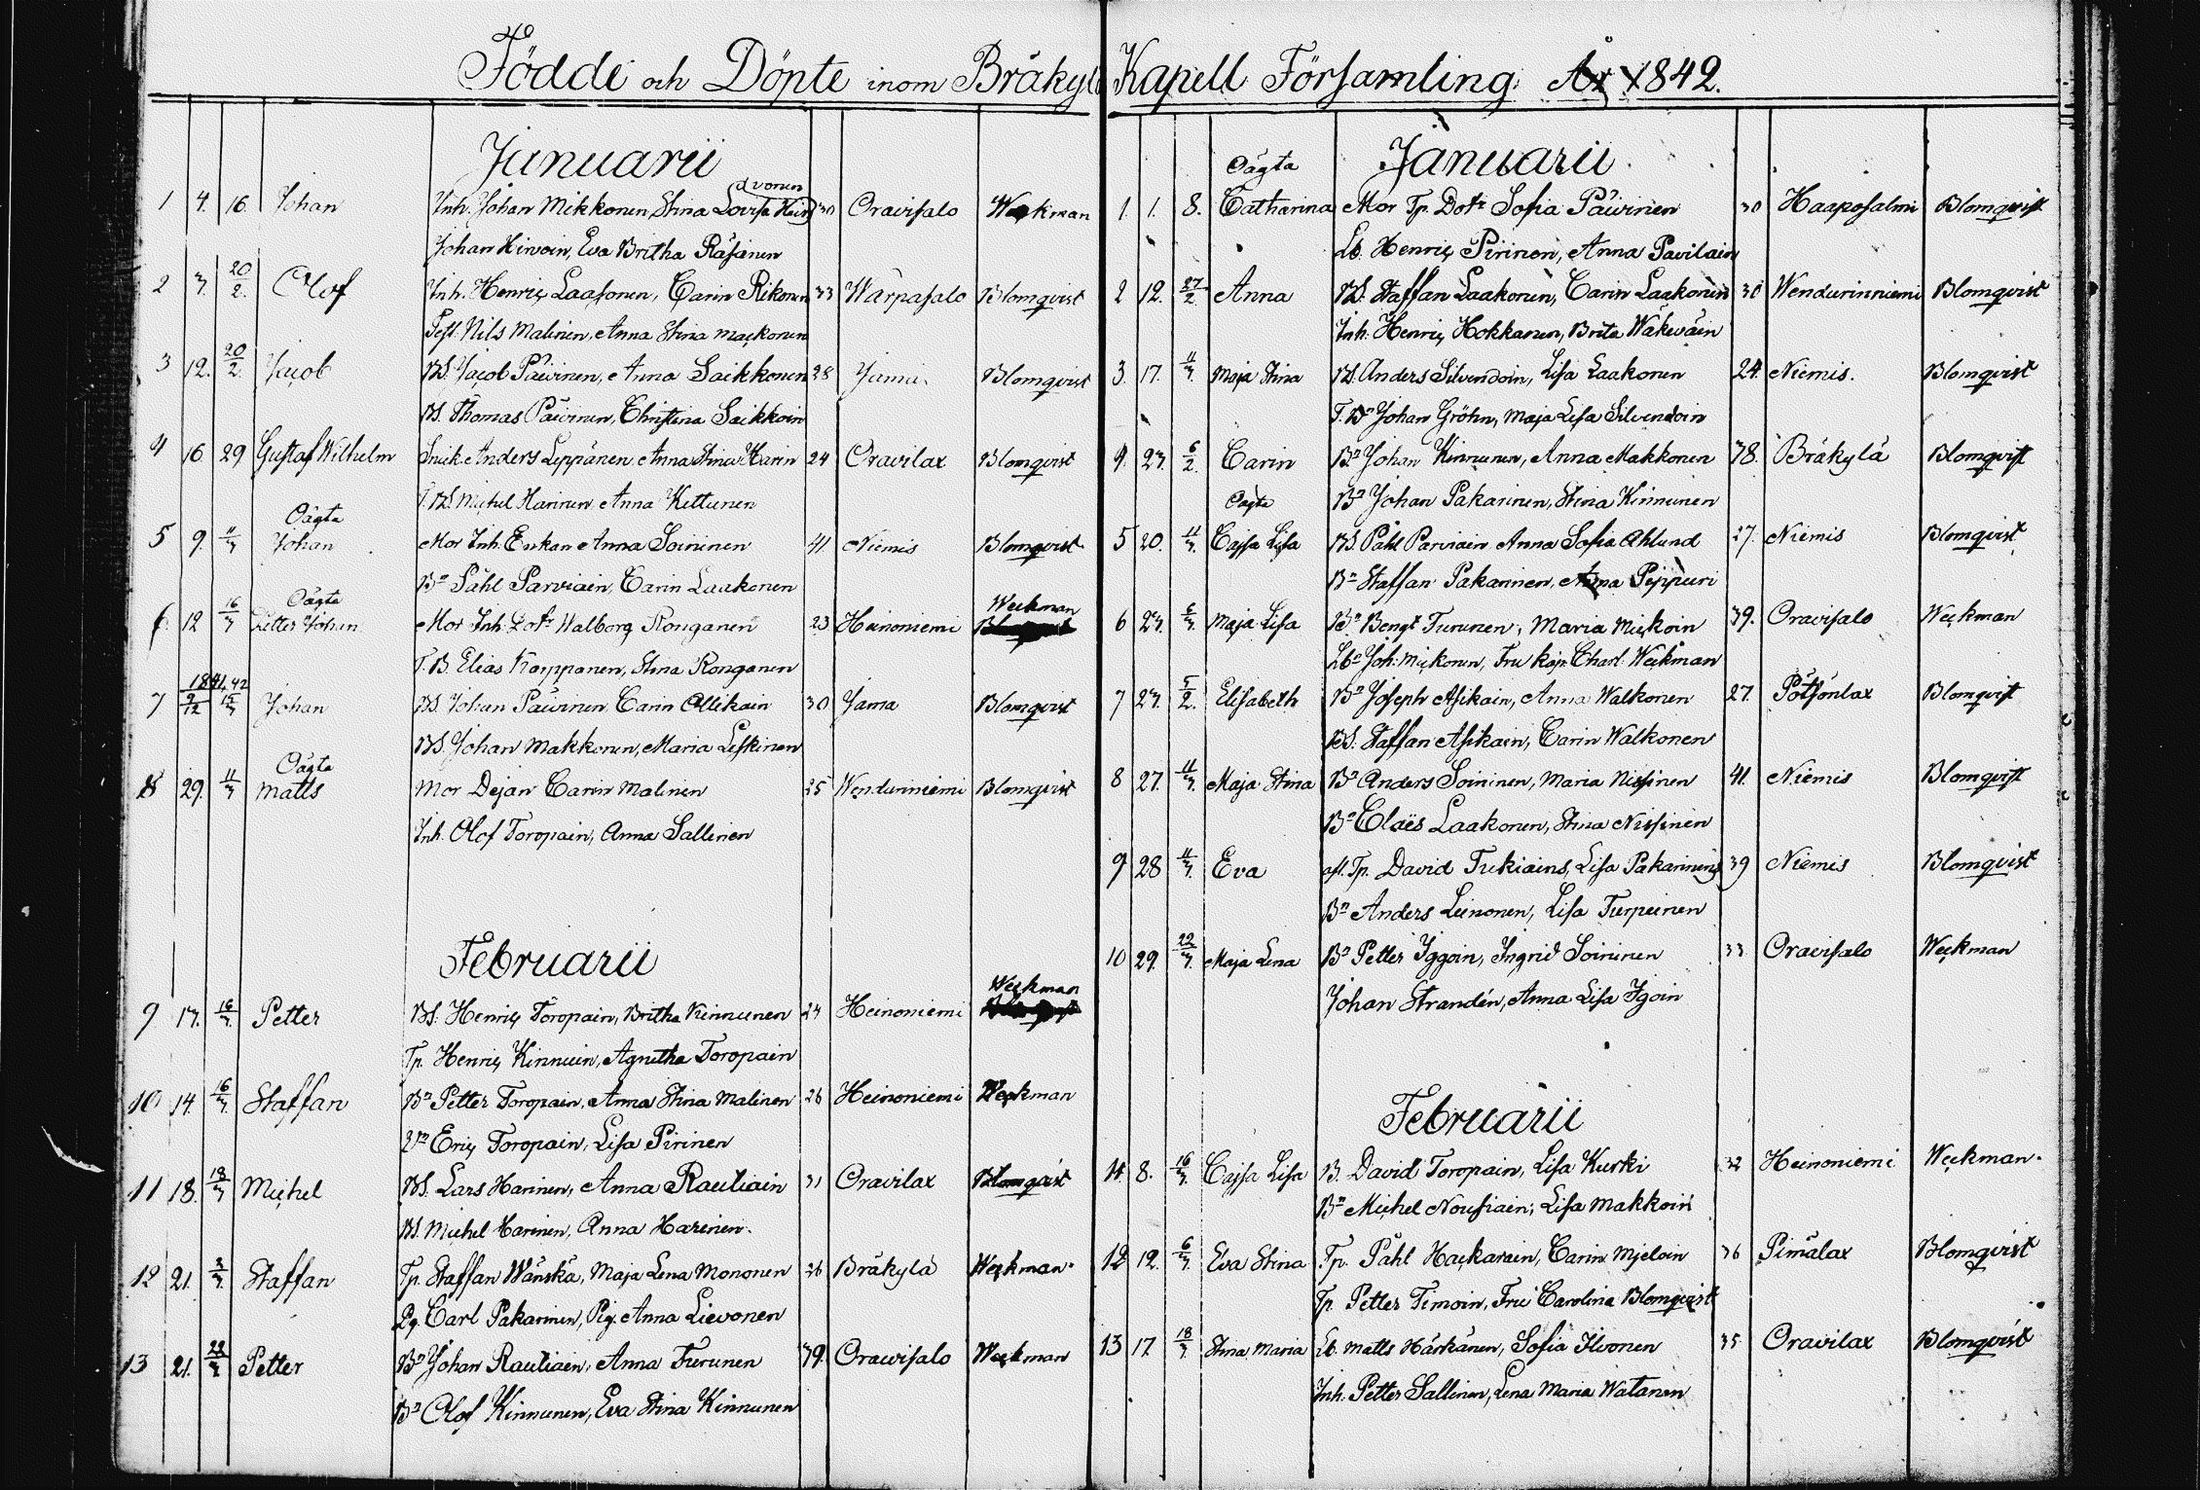 Födde och Döpte inom Bräkylä Kapell Församling År 1842.
Januarii
1 4. 16. Johan Inh. Johan Mikkonen, Stina Lovisa Hein 30 Oravisalo Weckman
Johan Hirvoin, Eva Britha Räsänen
2 3. 20/2. Olof Inh. Henriç Laasonen, Carin Rikonen 33 Wärpasalo Blomqvist
Nils Malinen, Anna Stina Maçkonen
3 12. 20/2. Jaçob BS. Jaçob Päivinen, Anna Saikkonen 28 Jama Blomqvist
BS. Thomas Päivinen, Christina Saikkoin
4 16 29 Gustaf Wilhelm Anders Leppänen Anna Stina Harin 24 Oravilax Blomqvist
Michel Harinen Anna Kettunen
Oägta
5 9. 11/3 Johan Mor Inh. Enkan Anna Soininen 41. Niemis Blomqvist
Bn Påhl Parviain, Carin Laakonen
Oägta Weckman
6 12 16/3 Petter Johan Mor Inh. Dotr Walborg Ronganen 23 Heinoniemi
T. B. Elias Karppanen, Stina Ronganen
1841, 42
7 9/12 15/3 Johan BS Johan Päivinen Carin Ollikain 30 Jama Blomqvist
BS. Johan Makkonen, Maria Leskinen
Oägta
8 29. 11/3 Matts Mor Dejan Carin Malinen 25 Wendurinniemi Blomqvist
Inh. Olof Toropain, Anna Sallinen
Februarii
Weçkman
9 17. 16/3. Petter BS. Henriç Toropain, Britha Kinnunen 24 Heinoniemi
Tp. Henriç Kinnuin, Agnetha Toropain
10 14. 16/3. Staffan Bn Petter Toropain, Anna Stina Malinen 26 Heinoniemi Weçkman
Eriç Toropain, Lisa Pirinen
11 18. 18/3 Miçhel BS. Lars Harinen, Anna Rautiain 31 Oravilax Blomqvist
BS. Michel Harinen, Anna Harinen.
12 21. 3/3 Staffan Tp. Staffan Wänskä, Maja Lena Mononen 26 Bräkylä Weçkman.
Dg. Carl Pakarinen, Pig. Anna Lievonen
13 21. 22/3 Petter Bn Johan Rautiain, Anna Turunen 39. Oravisalo Weçkman
Bn Olof Kinnunen, Eva Stina Kinnunen
Januarii
Oägta
1. 1. 8. Catharina Mor Tp. Dotr Sofia Päivinen 30 Haaposalmi Blomqvist
Lb. Henriç Pirinen, Anna Pavilain
2 12. 27/2 Anna BS. Staffan Laakonen, Carin Laakonen 30 Wendurinniemi Blomqvist
Inh. Henriç Hokkanen, Brita Wäkeväin
3. 17. 11/3. Maja Stina BS. Anders Silvendoin, Lisa Laakonen 24. Niemis. Blomqvist
Johan Gröhn, Maja Lisa Silvendoin
4. 23. 6/2. Carin Bn Johan Kinnunen, Anna Makkonen 38. Bräkylä Blomqvist
Oägta Bn Johan Pakarinen, Stina Kinnunen
5 20. 11/3. Cajsa Lisa BS. Påhl Parviain Anna Sofia Ahlund 27. Niemis Blomqvist
Bn Staffan Pakarinen, Anna Peippuri
6 23. 5/3. Maja Lisa Bn Bengt Turunen, Maria Miçkoin 39. Oravisalo Weçkman
Joh: Miçkonen, Fru Kap: Charl: Weçkman
7 23. 5/2. Elisabeth Bn Joseph Asikain, Anna Walkonen 27. Pötsönlax Blomqvist
BS. Staffan Asikain, Carin Walkonen
8 27. 11/3. Maja Stina Bn Anders Soininen, Maria Nissinen 41. Niemis Blomqvist
Bn Claës Laakonen, Stina Nissinen
9 28 11/3. Eva afl. Tp. David Tukiains, Lisa Pakarinens 39 Niemis Blomqvist
Bn Anders Leinonen, Lisa Turpeinen
10 29. 22/3. Maja Lena Bn Petter Iggoin, Ingrid Soininen 33 Oravisalo Weçkman
Johan Strandén, Anna Lisa Igoin
Februarii
11. 8. 16/3. Cajsa Lisa B. David Toropain, Lisa Kurki 32 Heinoniemi Weçkman.
Bn Miçhel Nousiain, Lisa Makkoin
12 12. 6/3. Eva Stina Tp. Påhl Haçkarain, Carin Mjeloin 36 Pimälax Blomqvist
Tp. Petter Timoin, Fru Carolina Blomqvist
13 17. 18/3. Stina Maria Lb. Matts Härkänen, Sofia Ilvonen 35 Oravilax Blomqvist
Inh. Petter Sallinen, Lena Maria Watanen